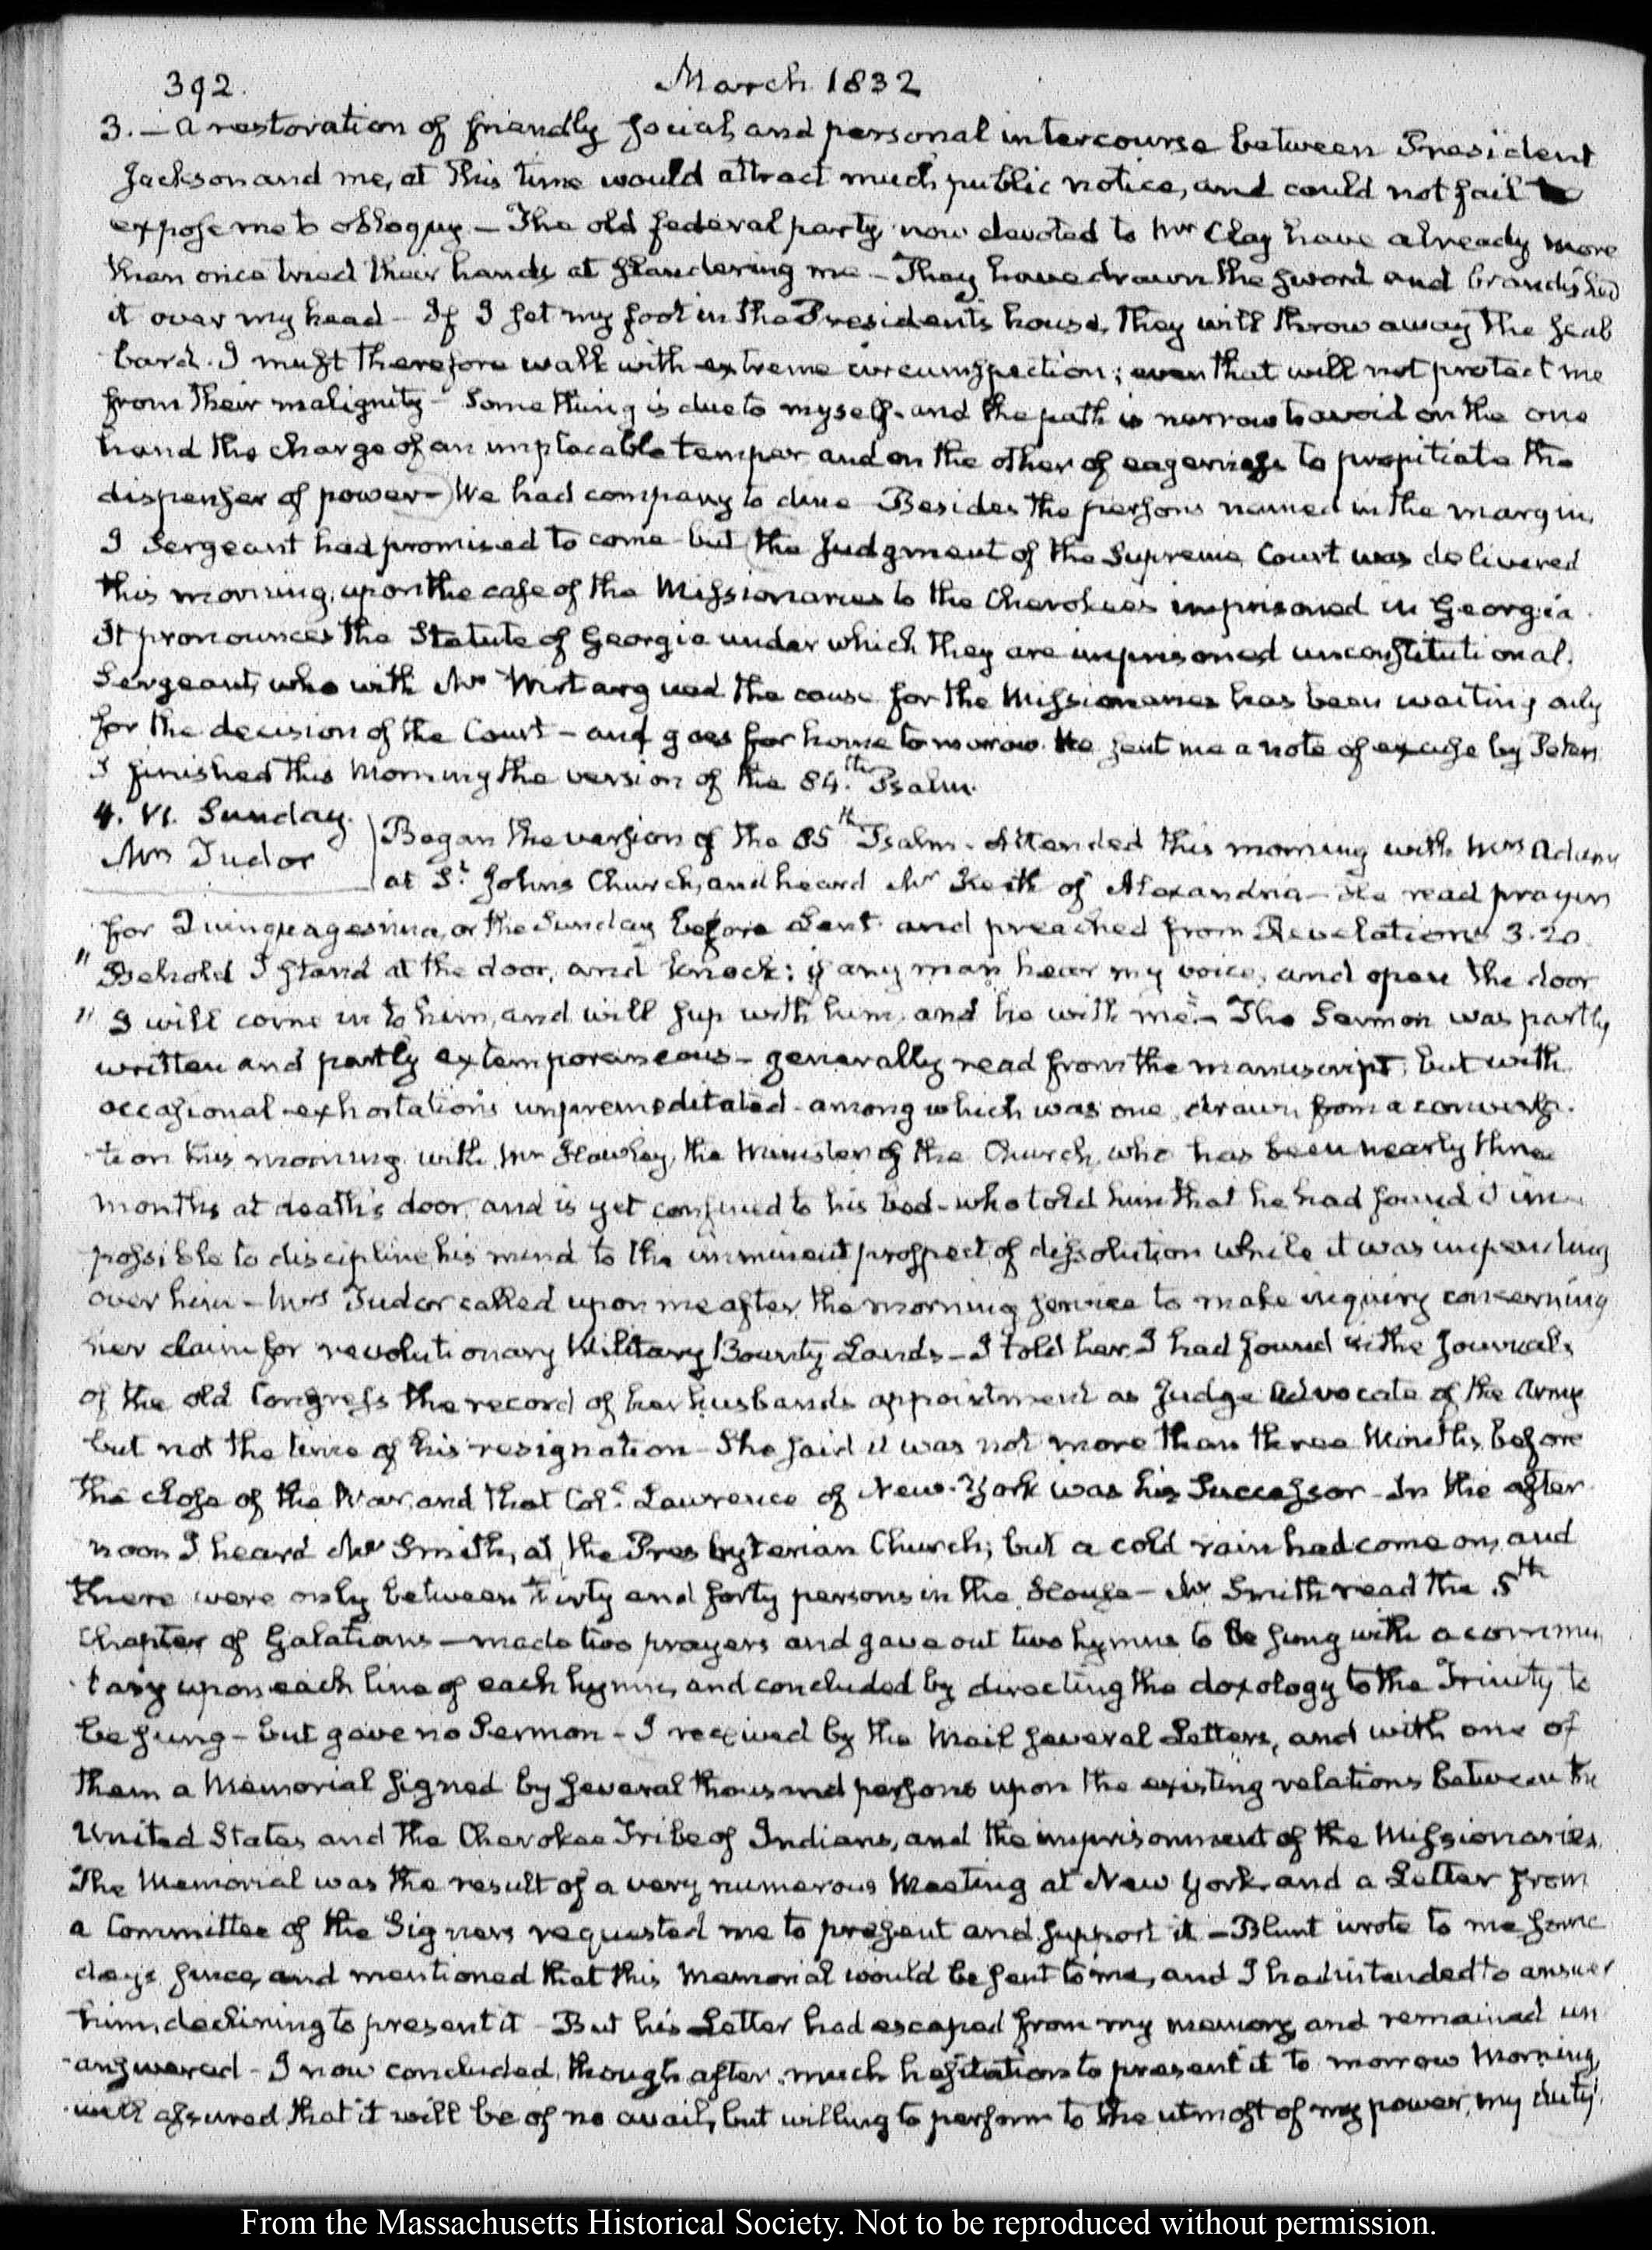 392.
March 1832
3. — A restoration of friendly social, and personal intercourse between President
Jackson and me, at this time would attract much public notice, and could not fail to
expose me to obloquy — The old federal party now devoted to Mr Clay have already more
than once tried their hands at slandering me — They have drawn the sword and brandished
it over my head — If I set my foot in the President's house, they will throw away the scab
bard. I must therefore walk with extreme circumspection; even that will not protect me
from their malignity — Something is due to myself — and the path is narrow to avoid on the one
hand the charge of an implacable temper, and on the other of eagerness to propitiate the
dispenser of power — We had company to dine Besides the persons named in the margin,
J Sergeant had promised to come but the judgment of the Supreme Court was delivered
this morning, upon the case of the Missionaries to the Cherokees imprisoned in Georgia.
It pronounces the Statute of Georgia under which they are imprisoned unconstitutional.
Sergeant, who with Mr Wirt argued the cause for the Missionaries has been waiting only
for the decision of the Court — and goes for home to morrow. He sent me a note of excuse by Peter.
I finished this Morning the version of the 84.th Psalm.
4. VI. Sunday.
Mrs Tudor
Began the version of the 85th Psalm. Attended this morning with Mrs Adams
at St. Johns Church, and heard Mr Keith of Alexandria — He read prayers
for Quinquagesima, or the Sunday before Lent and preached from Revelations 3.20
" Behold I stand at the door, and knock: if any man hear my voice, and open the door
" I will come in to him, and will sup with him, and he with me." — The Sermon was partly
written and partly extemporaneous — generally read from the manuscript, but with
occasional exhortations unpremeditated — among which was one, drawn from a conversa-
tion this morning with Mr Hawley, the Minister of the Church, who has been nearly three
months at death's door, and is yet confined to his bed — who told him that he had found it im-
possible to discipline his mind to the imminent prospect of dissolution while it was impending
over him — Mrs Tudor called upon me after the morning service to make inquiry concerning
her claim for revolutionary Military Bounty Lands — I told her I had found in the Journals
of the old Congress the record of her husbands appointment as Judge Advocate of the Army
but not the time of his resignation — She said it was not more than three Months before
the close of the War, and that Coll. Lawrence of New-York was his Successor — In the after
noon I heard Mr Smith, at the Presbyterian Church; but a cold rain had come on, and
there were only between thirty and forty persons in the House — Mr Smith read the 5th
Chapter of Galatians — made two prayers and gave out two hymns to be sung with a commen
tary upon each line of each hymn, and concluded by directing the doxology to the Trinity to
be sung — but gave no Sermon — I received by the Mail several Letters, and with one of
them a Memorial signed by several thousand persons upon the existing relations between the
United States and the Cherokee Tribe of Indians, and the imprisonment of the Missionaries.
The Memorial was the result of a very numerous Meeting at New York, and a Letter from
a Committee of the Signers requested me to present and support it — Blunt wrote to me some
days since, and mentioned that this Memorial would be sent to me, and I had intended to answer
him, declining to present it — But his Letter had escaped from my memory, and remained un
answered — I now concluded, though after much hesitation to present it to morrow Morning,
well assured that it will be of no avail, but willing to perform to the utmost of my power, my duty.
From the Massachusetts Historical Society. Not to be reproduced without permission.